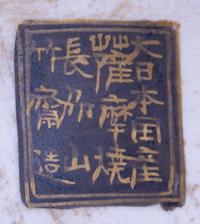 大日本国産
薩摩焼
長州山
竹齋造